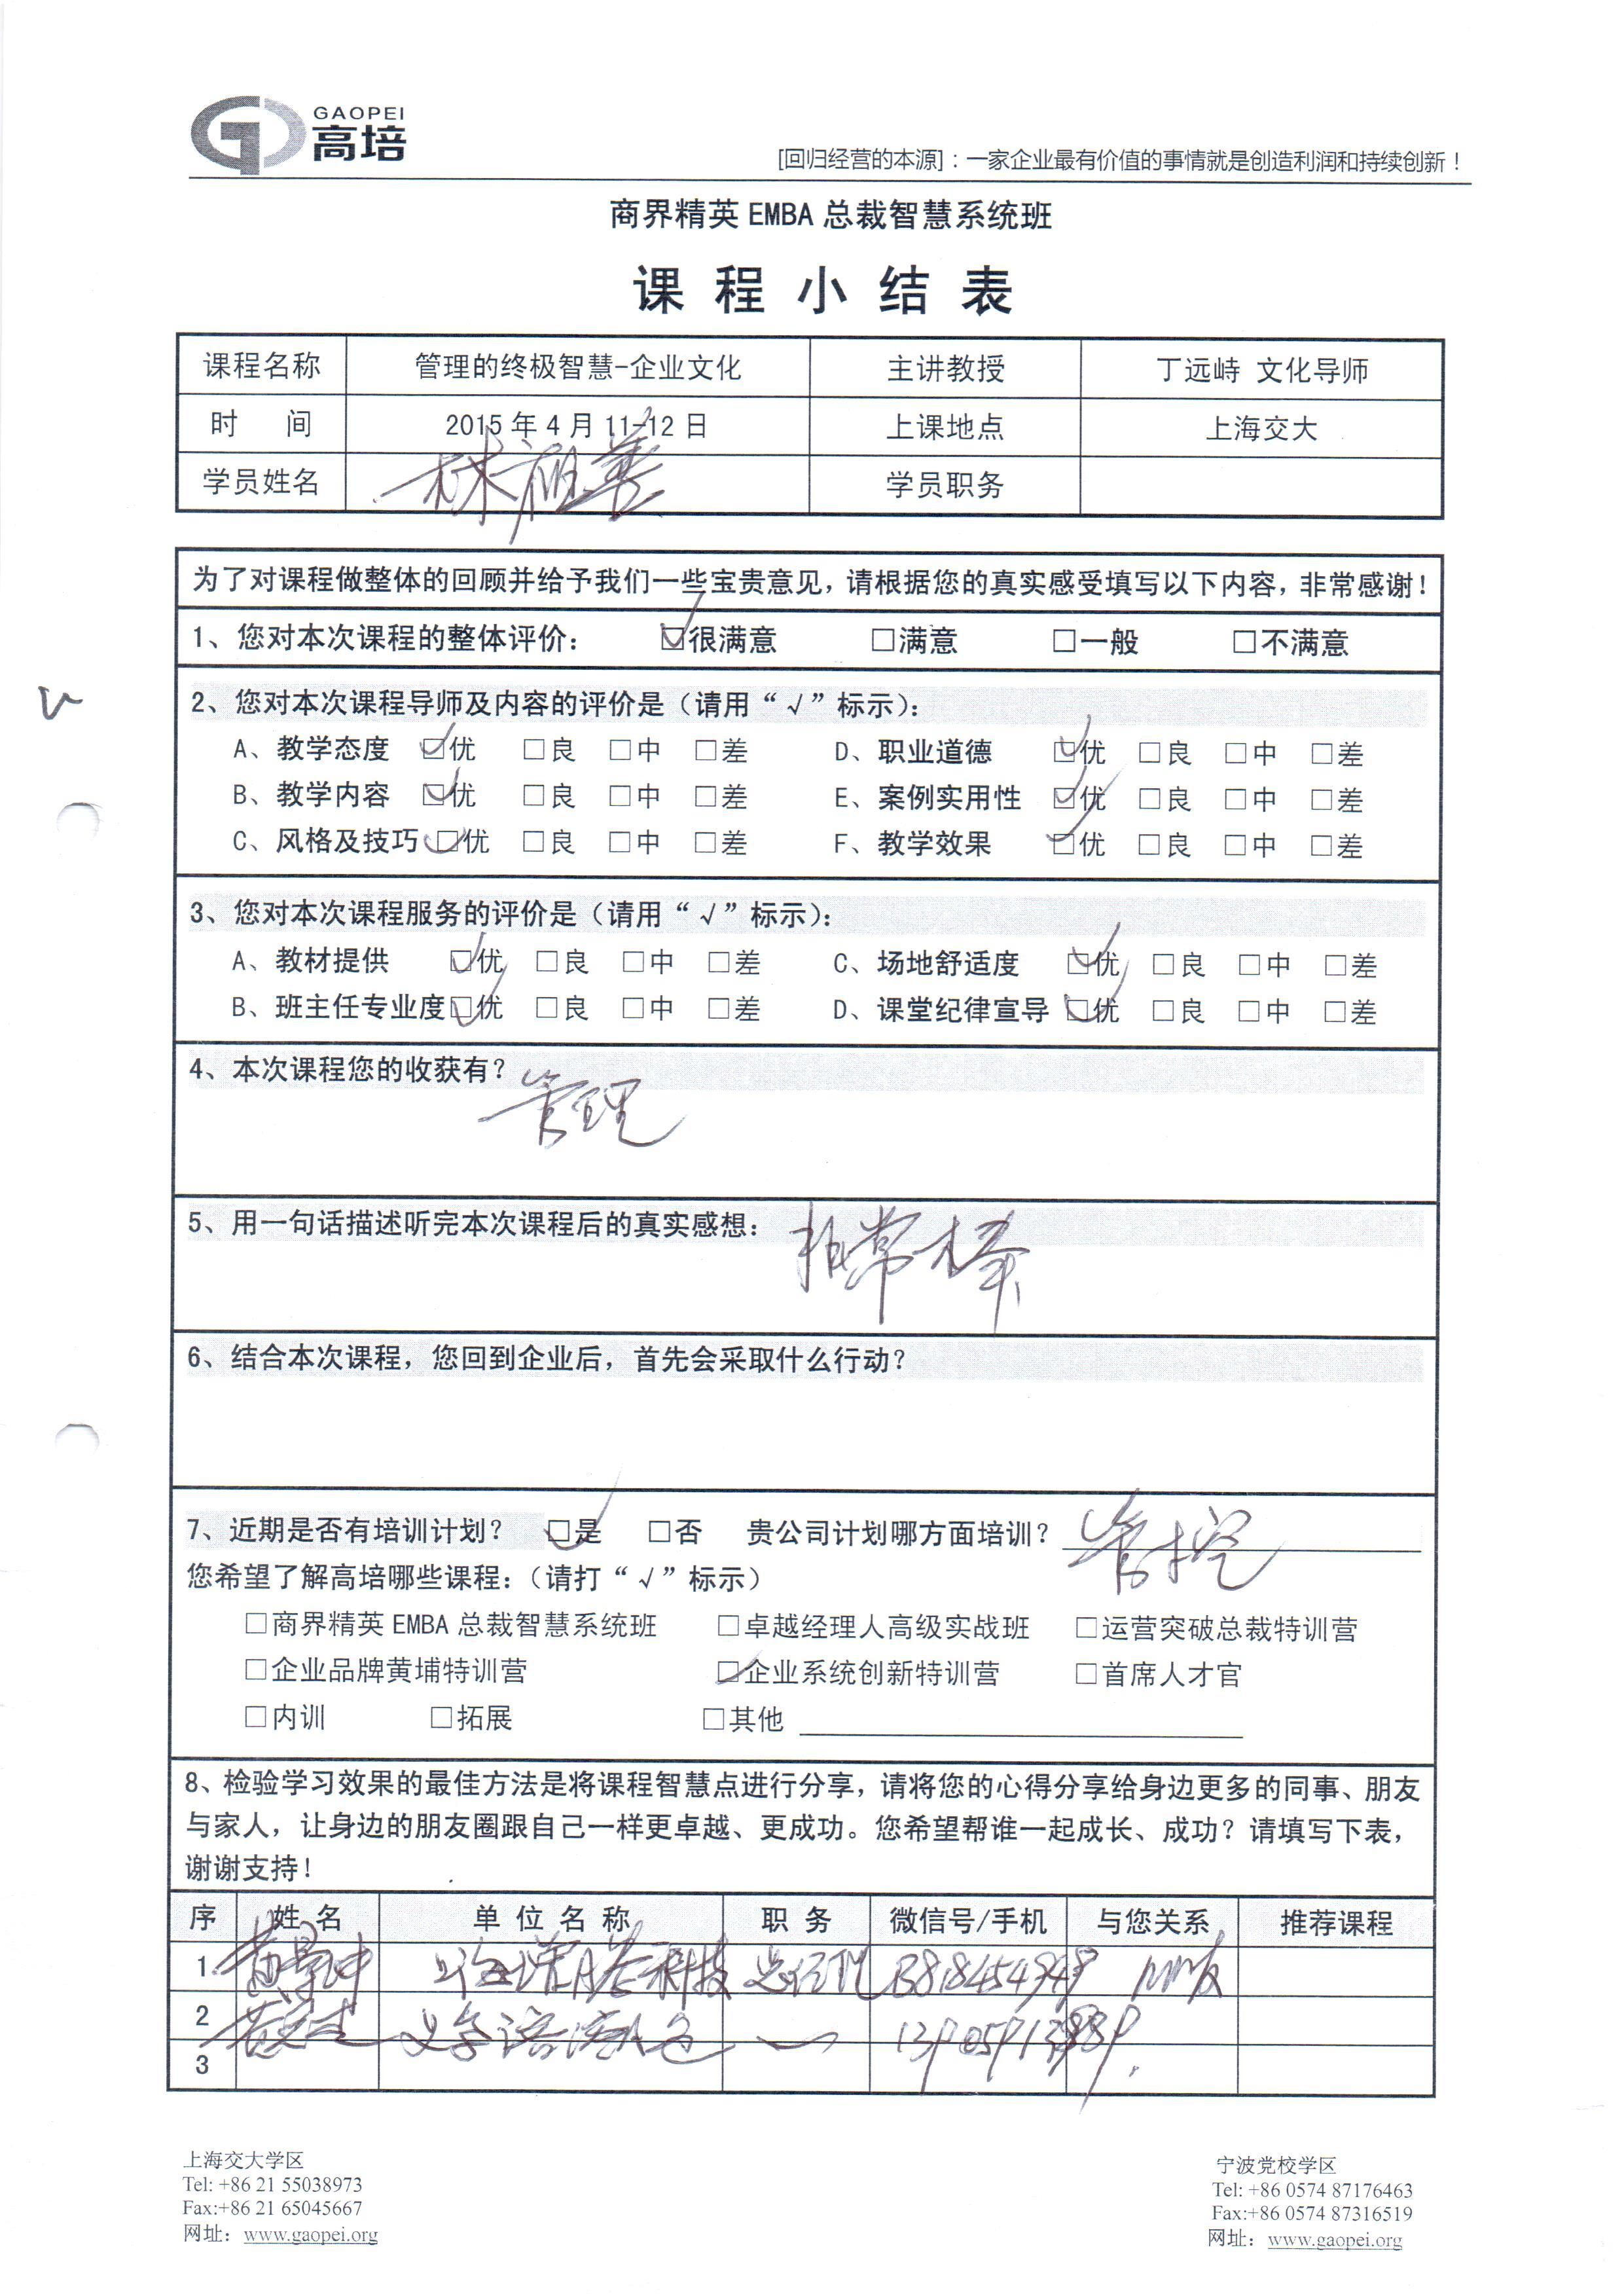 GAOPEI
高培
[回归经营的本源]：一家企业最有价值的事情就是创造利润和持续创新！
商界精英 EMBA 总裁智慧系统班
课 程 小 结 表
课程名称 管理的终极智慧-企业文化 主讲教授 丁远峙 文化导师
时 间 2015 年 4 月 11-12 日 上课地点 上海交大
学员姓名 林祖善 学员职务
为了对课程做整体的回顾并给予我们一些宝贵意见，请根据您的真实感受填写以下内容，非常感谢！
1、您对本次课程的整体评价： ☑很满意 □满意 □一般 □不满意
2、您对本次课程导师及内容的评价是（请用“√”标示）：
A、教学态度 ☑优 □良 □中 □差 D、职业道德 ☑优 □良 □中 □差
B、教学内容 ☑优 □良 □中 □差 E、案例实用性 ☑优 □良 □中 □差
C、风格及技巧 ☑优 □良 □中 □差 F、教学效果 ☑优 □良 □中 □差
3、您对本次课程服务的评价是（请用“√”标示）：
A、教材提供 ☑优 □良 □中 □差 C、场地舒适度 ☑优 □良 □中 □差
B、班主任专业度 ☑优 □良 □中 □差 D、课堂纪律宣导 ☑优 □良 □中 □差
4、本次课程您的收获有？ 管理
5、用一句话描述听完本次课程后的真实感想： 相常棒
6、结合本次课程，您回到企业后，首先会采取什么行动？
7、近期是否有培训计划？ ☑是 □否 贵公司计划哪方面培训？ 管控
您希望了解高培哪些课程：（请打“√”标示）
□商界精英 EMBA 总裁智慧系统班 □卓越经理人高级实战班 □运营突破总裁特训营
□企业品牌黄埔特训营 ☑企业系统创新特训营 □首席人才官
□内训 □拓展 □其他
8、检验学习效果的最佳方法是将课程智慧点进行分享，请将您的心得分享给身边更多的同事、朋友
与家人，让身边的朋友圈跟自己一样更卓越、更成功。您希望帮谁一起成长、成功？请填写下表，
谢谢支持！
序 姓 名 单 位 名 称 职 务 微信号/手机 与您关系 推荐课程
1 总经理
2
3
上海交大学区
Tel: +86 21 55038973
Fax:+86 21 65045667
网址：www.gaopei.org
宁波党校学区
Tel: +86 0574 87176463
Fax:+86 0574 87316519
网址：www.gaopei.org